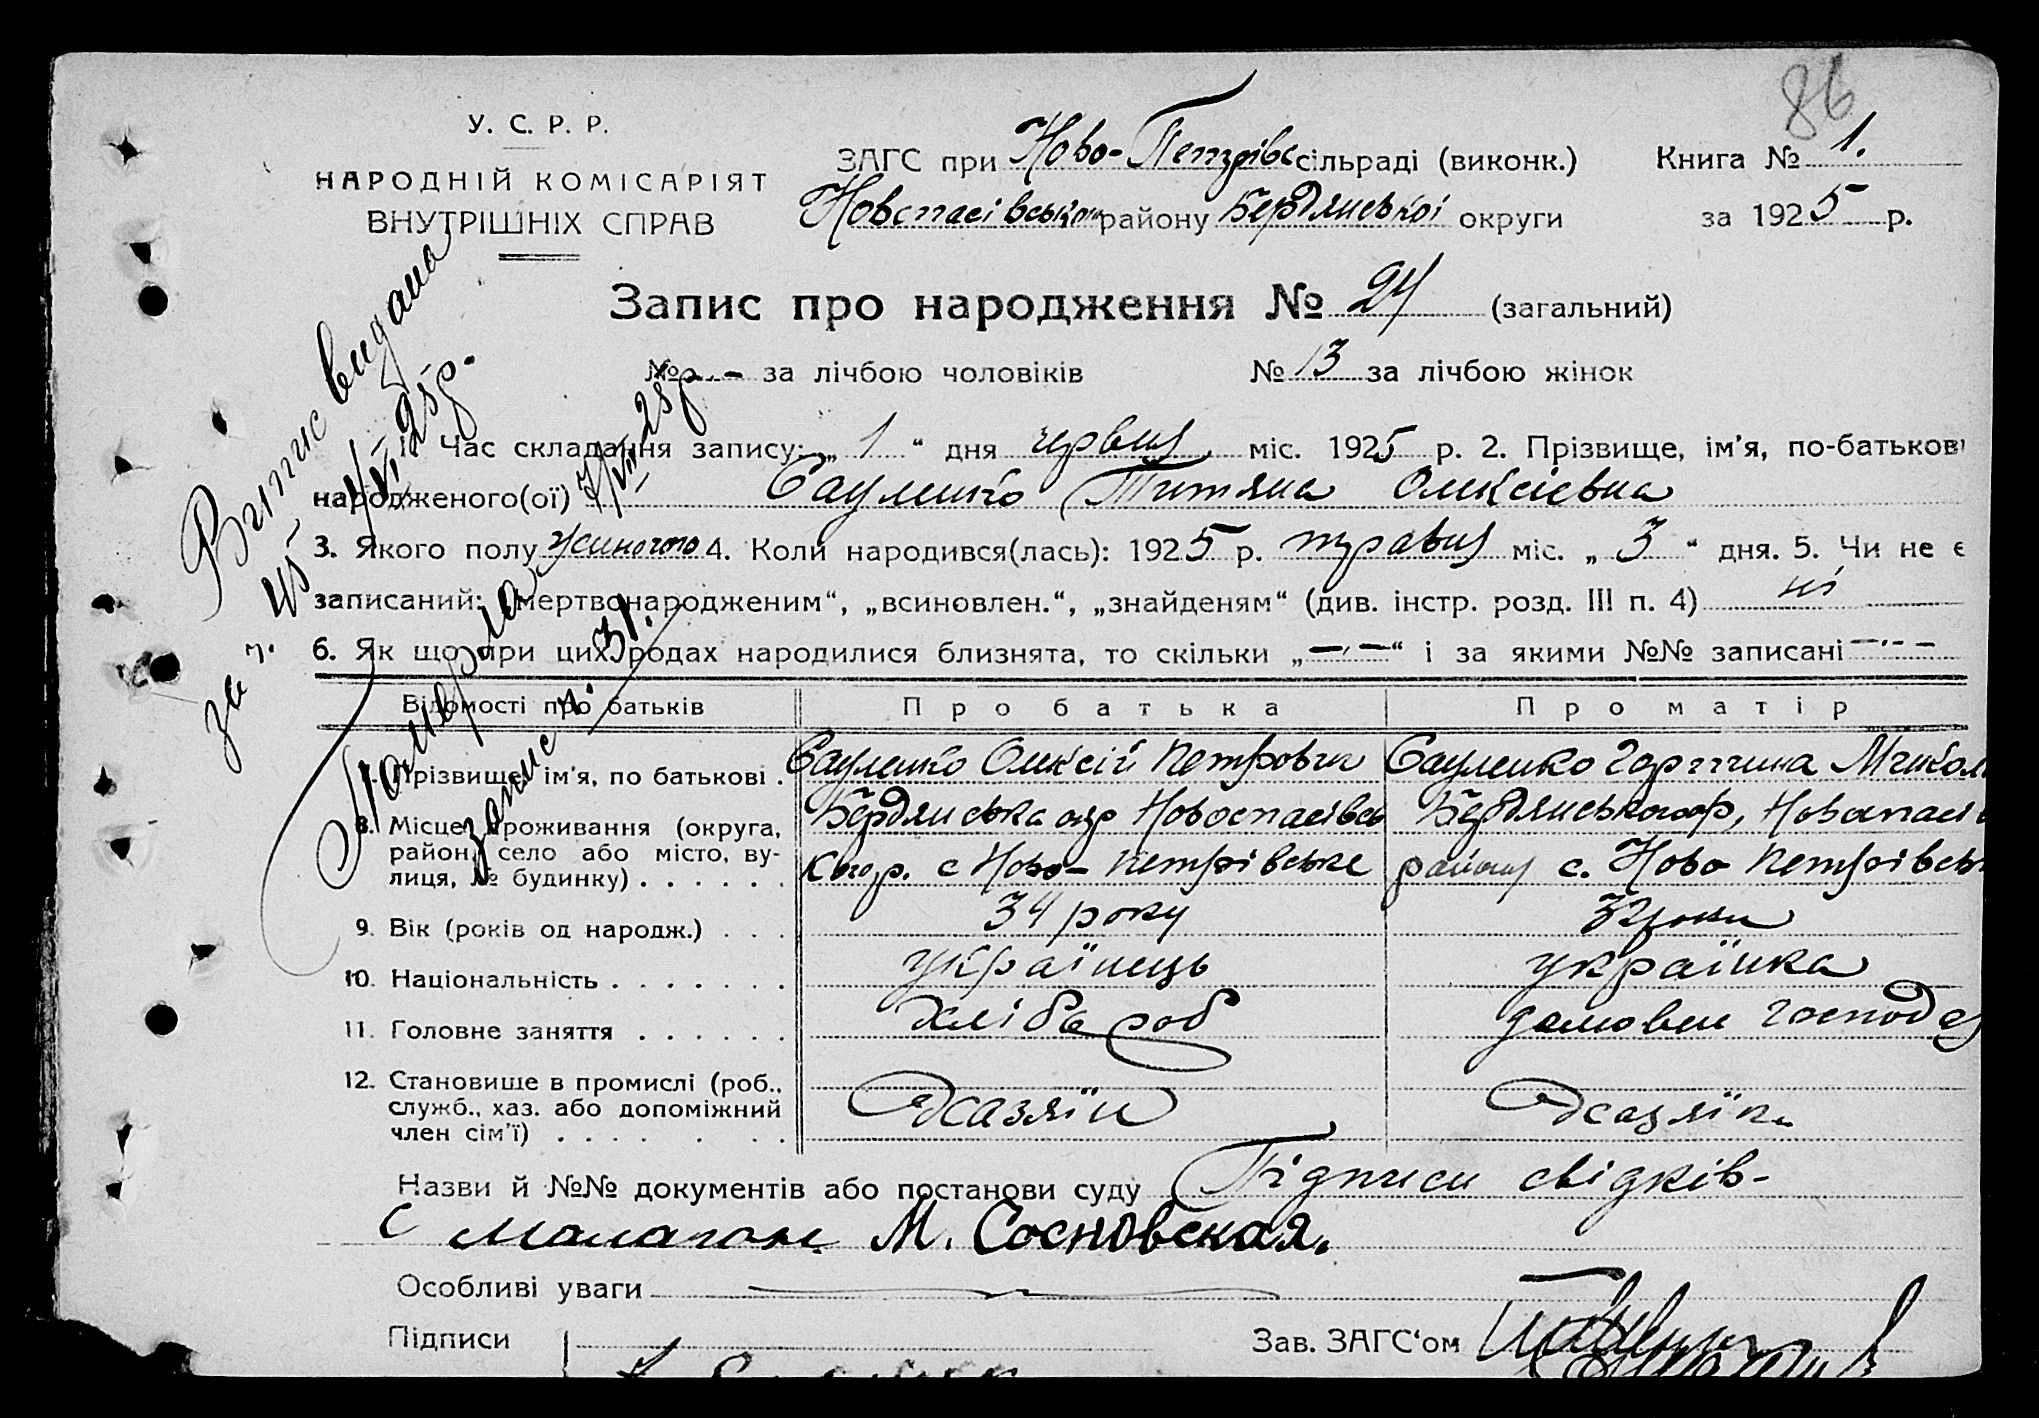 86
У. С. Р. Р.
НАРОДНІЙ КОМІСАРІЯТ
ВНУТРІШНІХ СПРАВ
ЗАГС при Ново-Петрівс сільраді (виконк.) Книга № 1.
Новспасівського району Бердянської округи за 1925 р.
Запис про народження № 24 (загальний)
№ - . - за лічбою чоловіків № 13 за лічбою жінок
Витис видана
за ч. 45 25 р.
Померла 25 р
запис ч. 31.
1. Час складання запису: „ 1 “ дня червня міс. 1925 р. 2. Прізвище, ім'я, по-батькові
народженого(ої) Сауленко Титяна Олексіевна
3. Якого полу жиночого 4. Коли народився(лась): 1925 р. травня міс. „ 3 “ дня. 5. Чи не є
записаний: „мертвонародженим“, „всиновлен.“, „знайденям“ (див. інстр. розд. III п. 4) ні
6. Як що при цих родах народилися близнята, то скільки „ — . — “ і за якими №№ записані — . . —
Відомості про батьків Про батька Про матір
7. Прізвище, ім'я, по батькові . Сауленко Олексій Петрович Сауленко Горпина Микол
8. Місце проживання (округа, Бердянська окр Новоспасівсь Бердянського окр, Новоспасів
район, село або місто, ву-
лиця, № будинку) . . . . . . с Ново-Петрівське району с. Ново Петрівськ
9. Вік (років од народж.) . . . 34 року 32 роки
10. Національність . . . . . . . українець українка
11. Головне заняття . . . . . . хлібороб домовем господ
12. Становище в промислі (роб.,
служб., хаз. або допоміжний хазяїн хазяїн
член сім'ї) . . . . . . .
Назви й №№ документів або постанови суду Підписи свідків-
М. Сосновская.
Особливі уваги
Підписи Зав. ЗАГС'ом